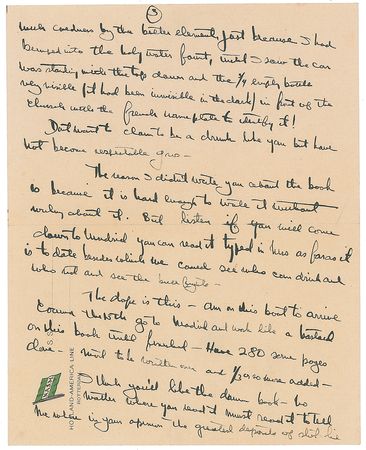 3
much coedness by the better element just because I had
bumped into the holy water fount, until I saw the car
was standing with the top down and the 3/4 empty bottle
very visible (it had been invisible in the dark) in front of the
church with the french name plate to identify it!
Dont want to claim to be a drunk like you but have
not become respectable
The reason I didn't write you about the book
is because it is hard enough to write it without
writing about it. But listen if you will come
down to Madrid you can read it typed in as far as it
is to date besides which we could see who can drink and
who not and see the bull fights -
The dope is this - am on this boat to arrive
the 15th go to Madrid and work like a bastard
on this book until finished - Have 280 some pages
done - to be written and added -
I think you'd like the damn book - no
matter where you read it must read it to tell
me where in your opinion the greatest deposits of
S.S.
HOLLAND-AMERICA LINE
ROTTERDAM